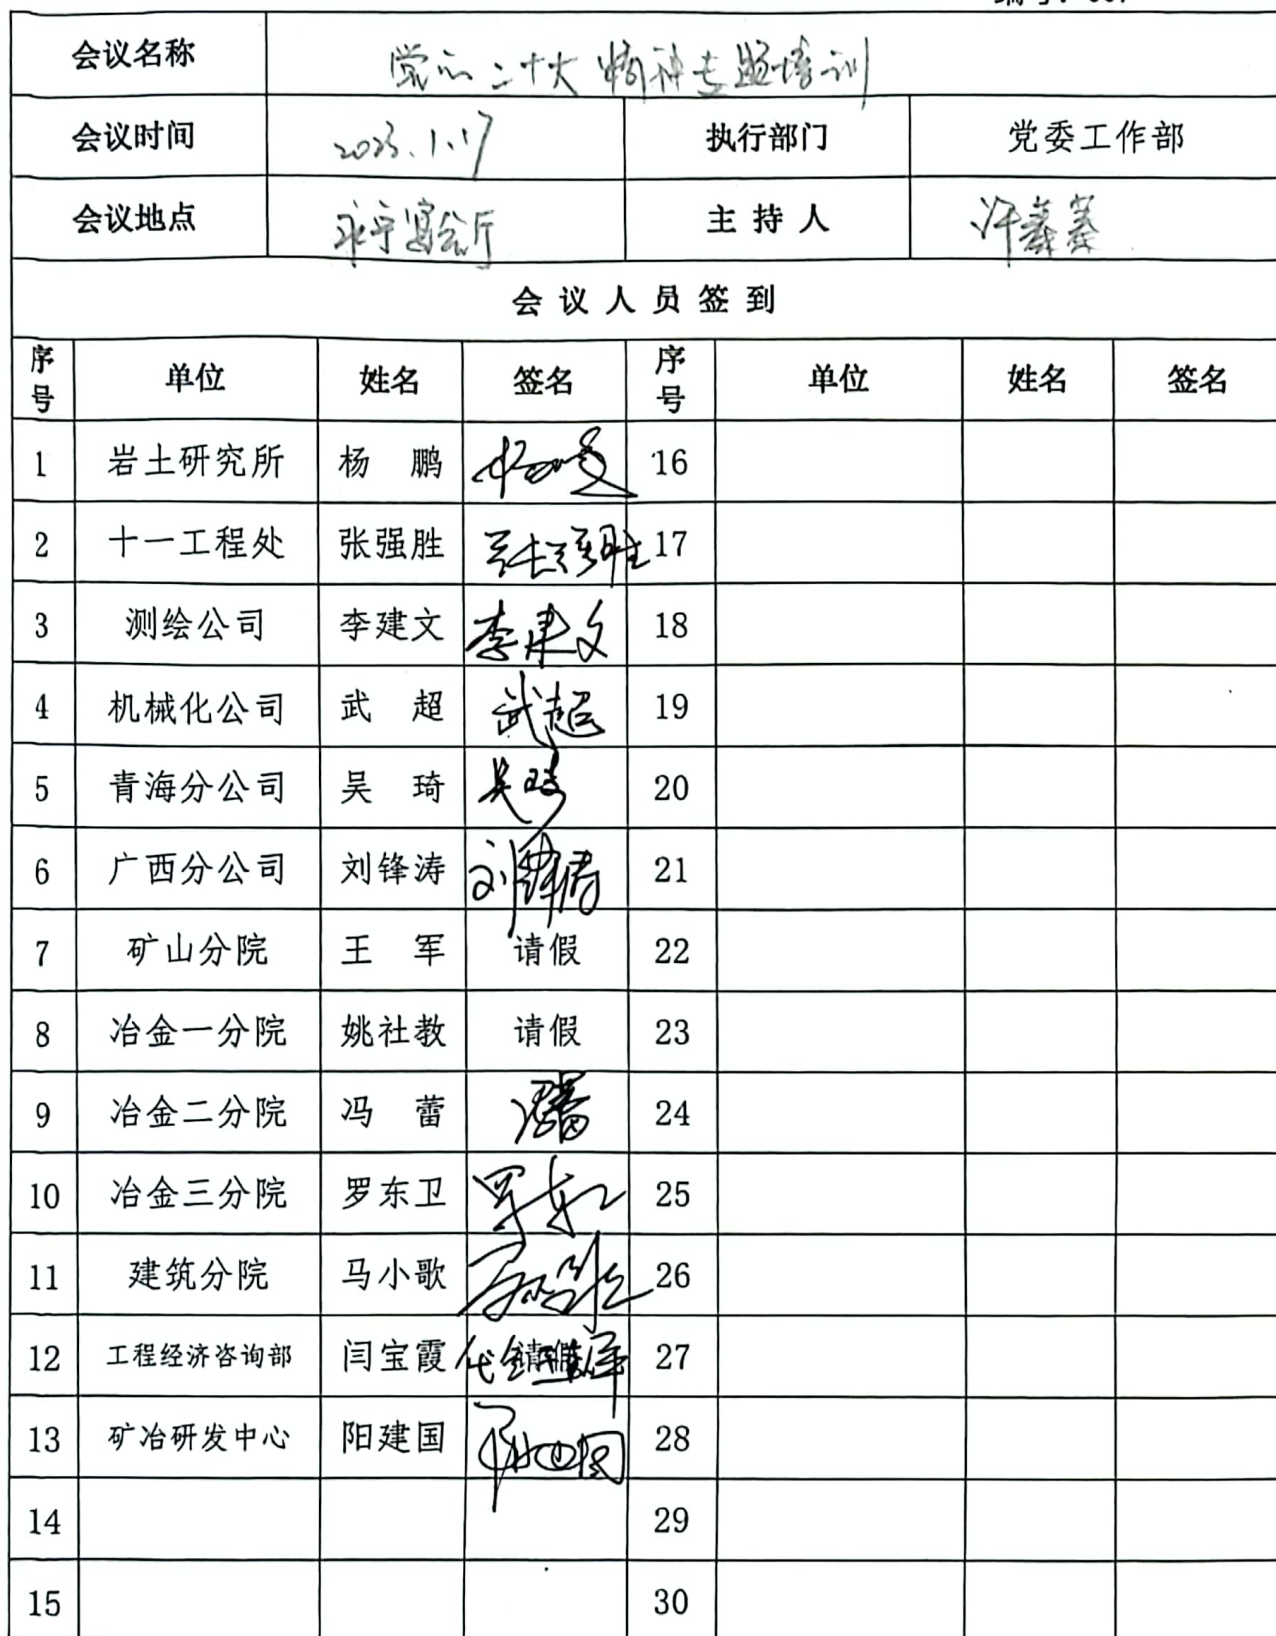 会议名称 党的二十大精神专题培训
会议时间 2023.1.17 执行部门 党委工作部
会议地点 永宁宴会厅 主持人
会议人员签到
序号 单位 姓名 签名 序号 单位 姓名 签名
1 岩土研究所 杨鹏 杨鹏 16
2 十一工程处 张强胜 张强胜 17
3 测绘公司 李建文 李建文 18
4 机械化公司 武超 武超 19
5 青海分公司 吴琦 吴琦 20
6 广西分公司 刘锋涛 刘锋涛 21
7 矿山分院 王军 请假 22
8 冶金一分院 姚社教 请假 23
9 冶金二分院 冯蕾 冯蕾 24
10 冶金三分院 罗东卫 罗东卫 25
11 建筑分院 马小歌 26
12 工程经济咨询部 闫宝霞 请假 27
13 矿冶研发中心 阳建国 阳建国 28
14 29
15 30